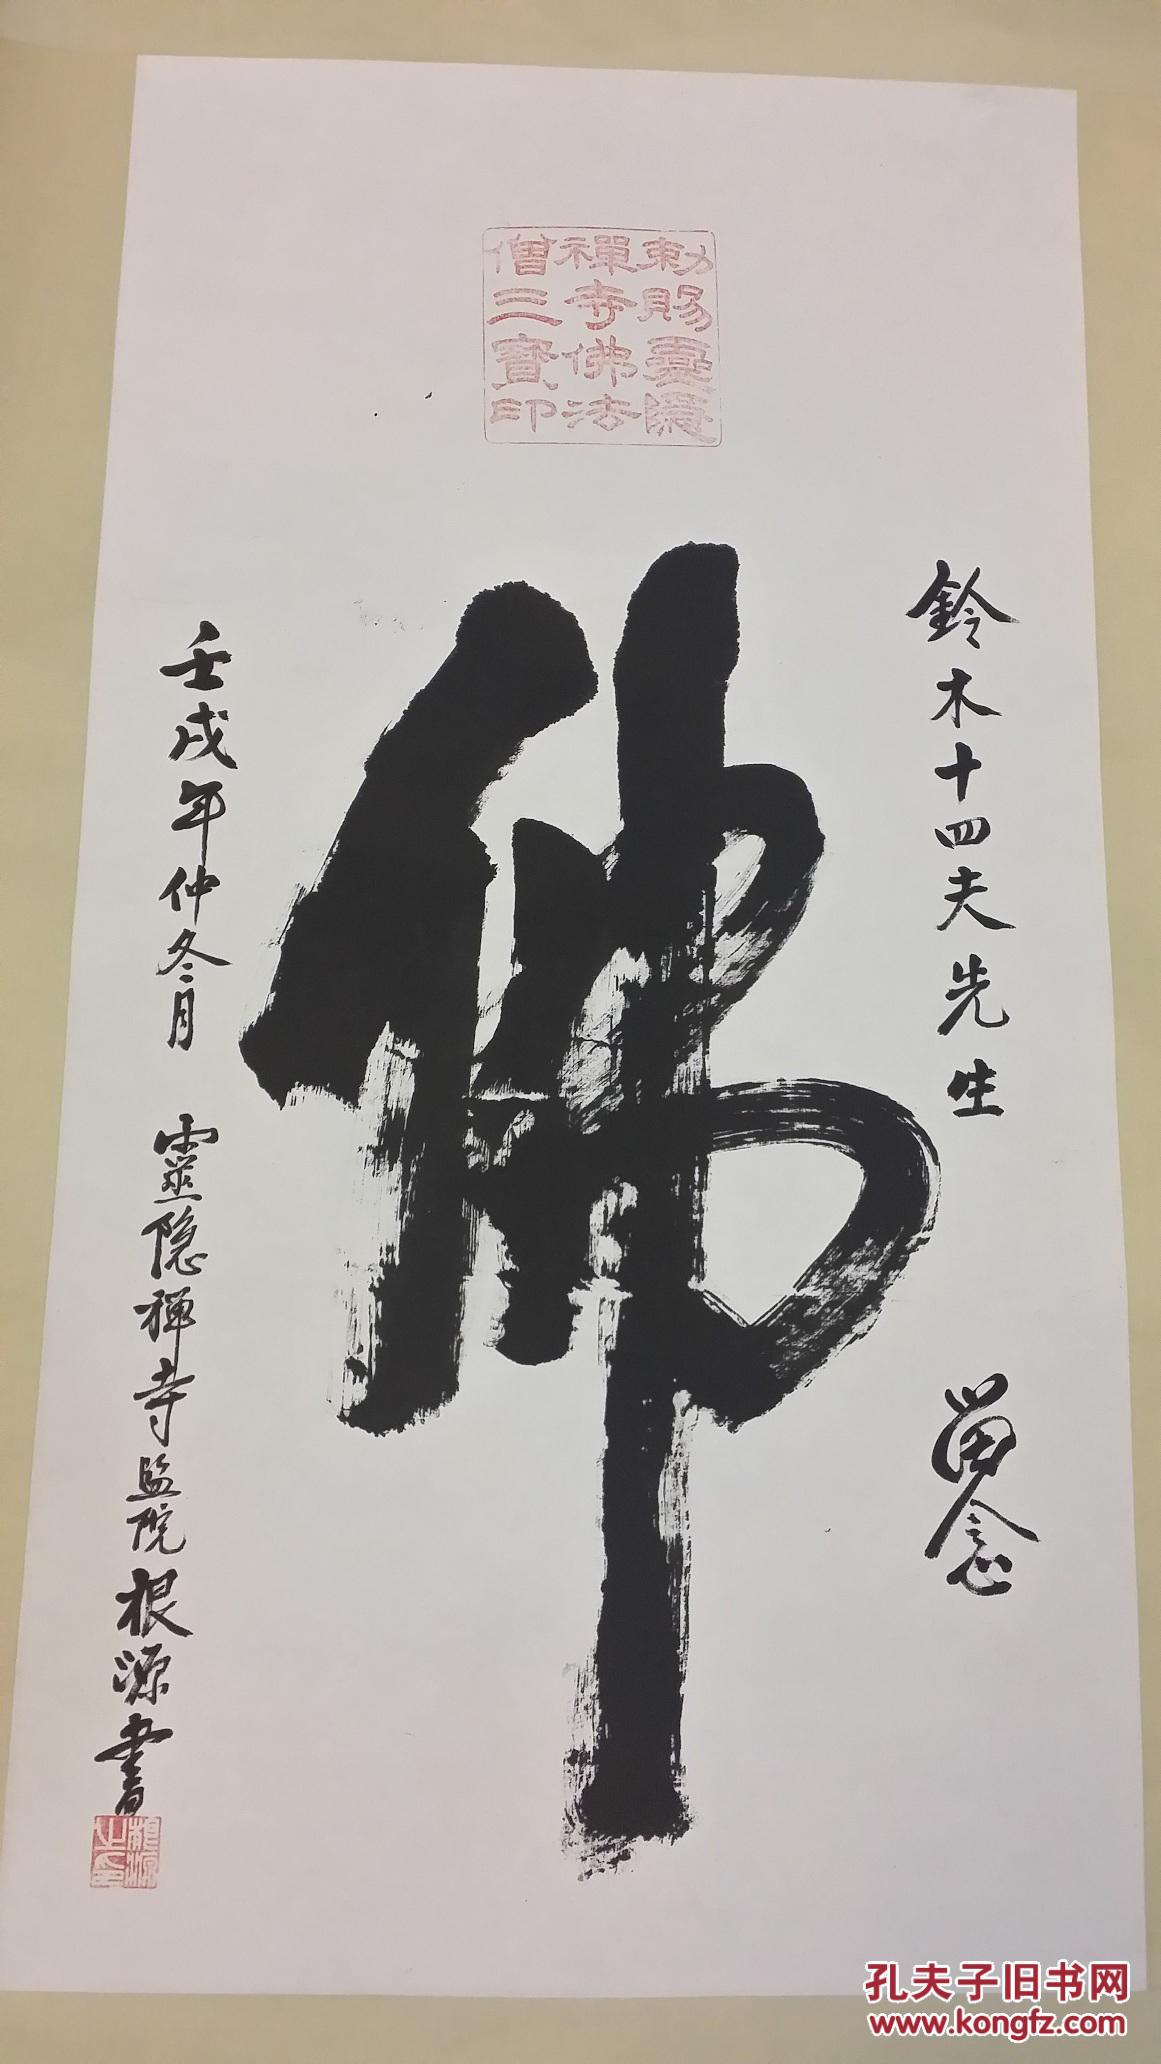 勅賜靈隱
禪寺佛法
僧三寶印
鈴木十四夫先生 留念
佛
壬戌年仲冬月 靈隐禅寺监院根源書
根源
之印
孔夫子旧书网
www.kongfz.com